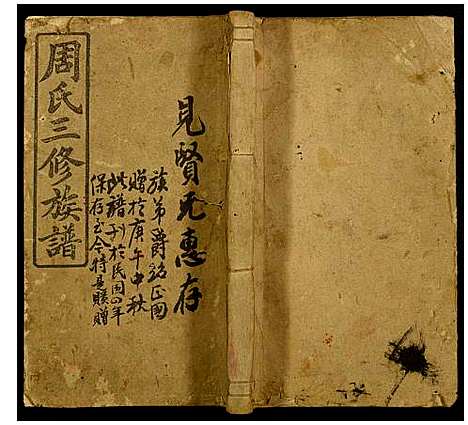 周氏三修族譜
見賢兄惠存
族弟爵銘正國
贈於庚午中秋
此譜刊於民國四年
保存至今特是贈